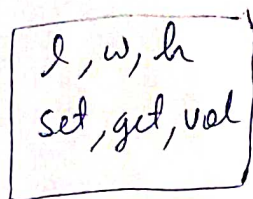 l, w, h
set, get, vol